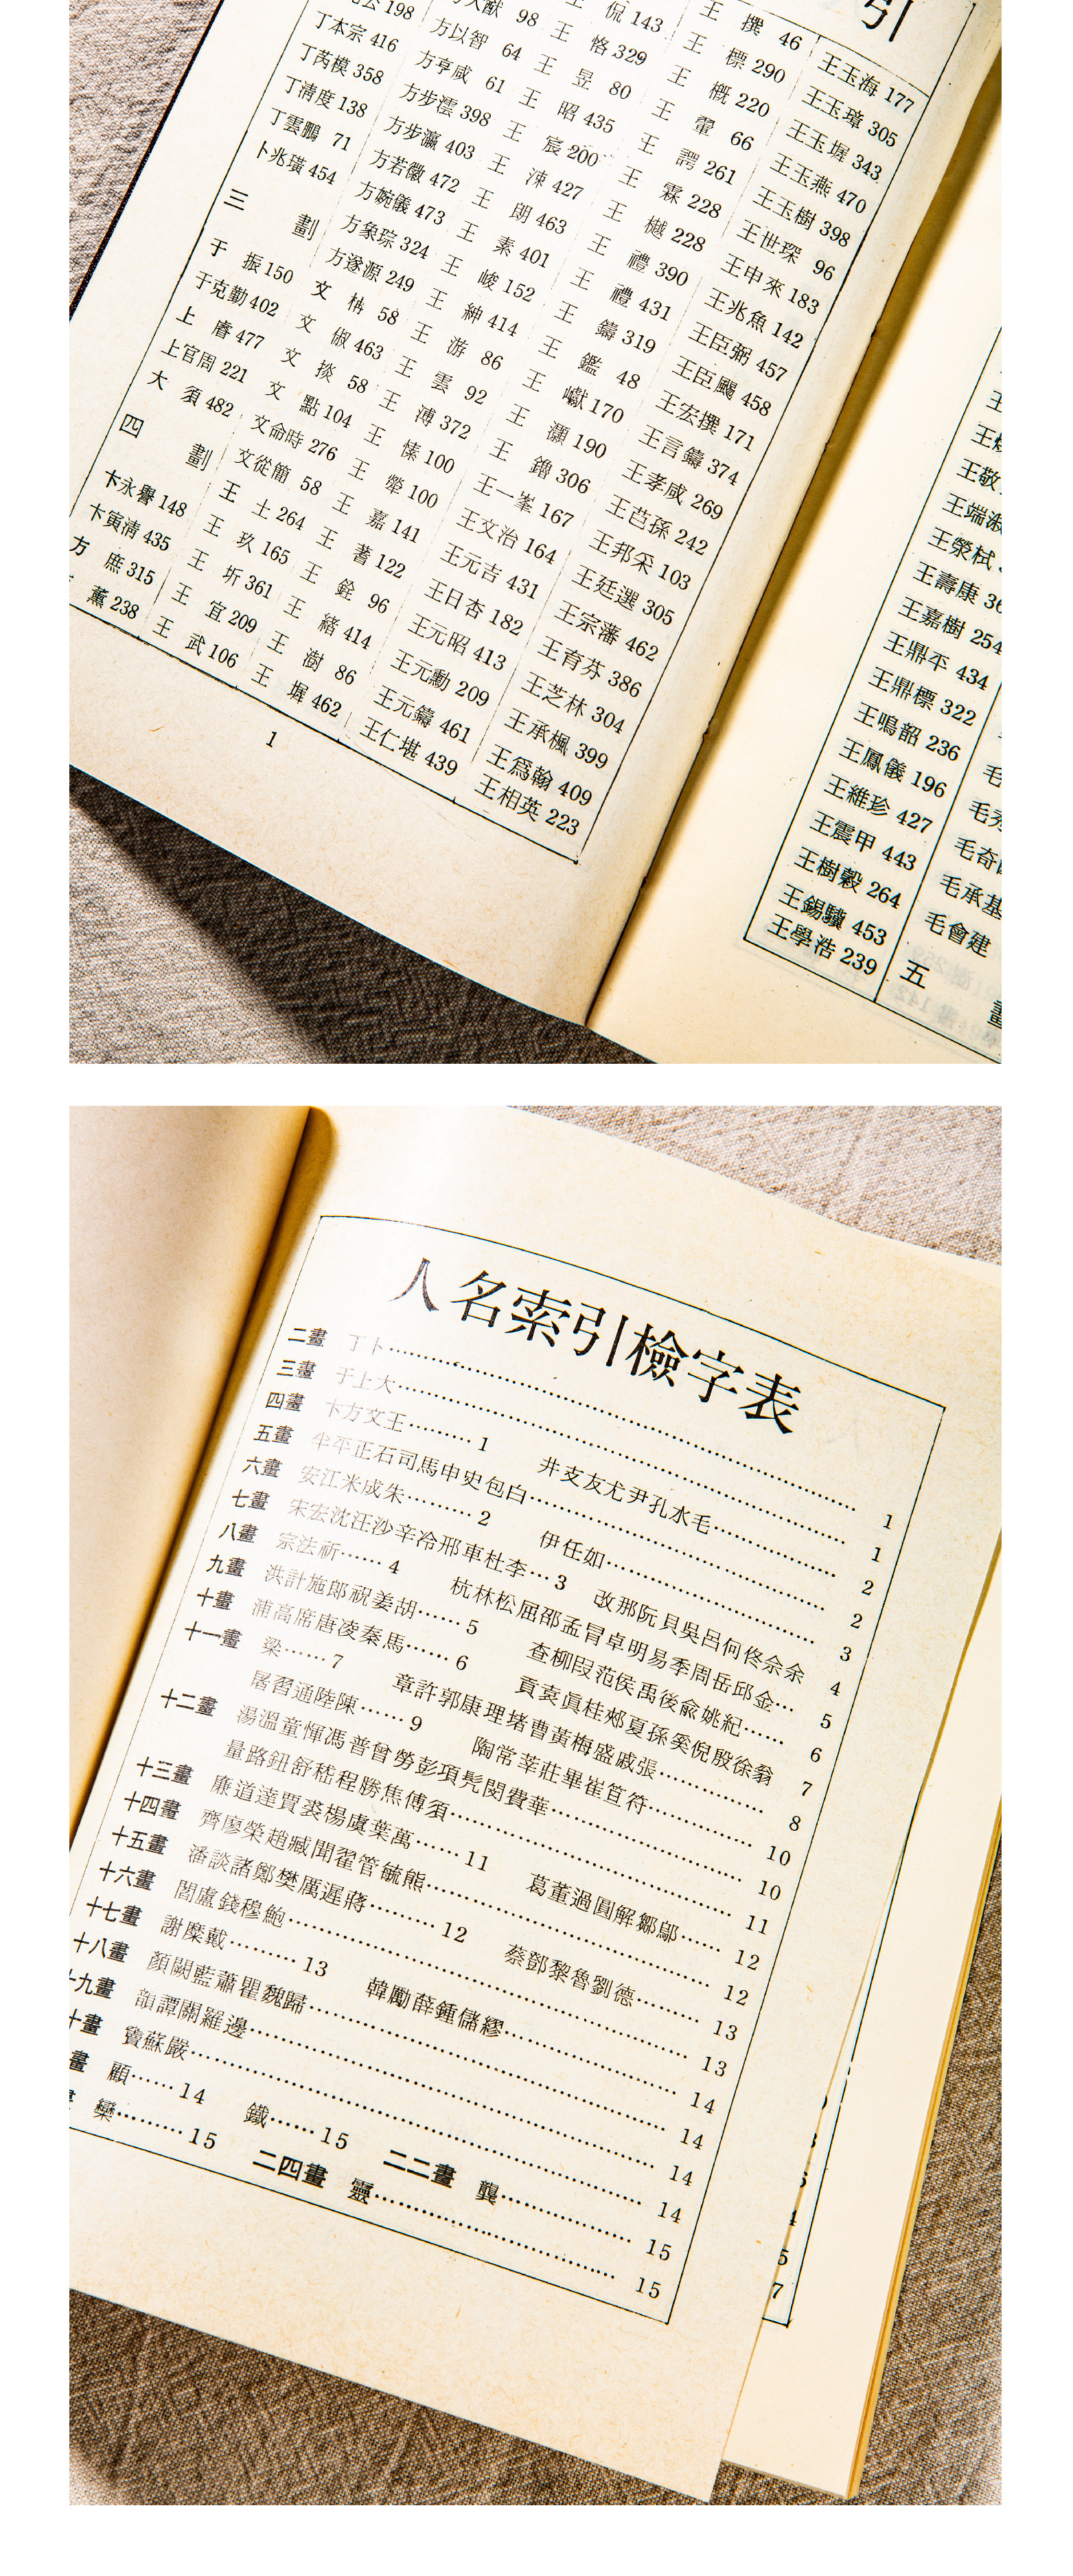 引
198
丁本宗 416
丁芮模 358
丁清度 138
丁雲鵬 71
卜兆璜 454
三 劃
于 振 150
于克勤 402
上 睿 477
上官周 221
大 須 482
四 劃
卞永譽 148
卞寅清 435
方 庶 315
薰 238
98
方以智 64
方亨咸 61
方步澐 398
方步瀛 403
方若徽 472
方婉儀 473
方象琮 324
方邃源 249
文 柟 58
文 俶 463
文 掞 58
文 點 104
文命時 276
文從簡 58
王 土 264
王 玖 165
王 圻 361
王 宜 209
王 武 106
王 侃 143
王 恪 329
王 昱 80
王 昭 435
王 宸 200
王 涑 427
王 朗 463
王 素 401
王 峻 152
王 紳 414
王 游 86
王 雲 92
王 溥 372
王 愫 100
王 犖 100
王 嘉 141
王 蓍 122
王 銓 96
王 緒 414
王 澍 86
王 墀 462
王 撰 46
王 標 290
王 概 220
王 翬 66
王 諤 261
王 霖 228
王 樾 228
王 禮 390
王 禮 431
王 鑄 319
王 鑑 48
王 巘 170
王 灝 190
王 鏴 306
王一峯 167
王文治 164
王元吉 431
王日杏 182
王元昭 413
王元勳 209
王元鑄 461
王仁堪 439
王玉海 177
王玉璋 305
王玉墀 343
王玉燕 470
王玉樹 398
王世琛 96
王申來 183
王兆魚 142
王臣弼 457
王臣颺 458
王宏撰 171
王言鑄 374
王孝咸 269
王芑孫 242
王邦采 103
王廷選 305
王宗藩 462
王育芬 386
王芝林 304
王承楓 399
王爲翰 409
王相英 223
1
王敬
王端淑
王滎栻
王壽康
王嘉樹 254
王鼎平 434
王鼎標 322
王鳴韶 236
王鳳儀 196
王維珍 427
王震甲 443
王樹穀 264
王錫驥 453
王學浩 239
毛
毛奇
毛承基
毛會建
五
人名索引檢字表
二畫 丁卜……1
三畫 于上大……1
四畫 卞方文王……1 井支友尤尹孔水毛……2
五畫 半平正石司馬申史包白……2
六畫 安江米成朱……2 伊任如……3
七畫 宋宏沈汪沙辛冷邢車杜李…3 改那阮貝吳呂何佟佘余 4
八畫 宗法祈……4 杭林松屈邵孟冒卓明易季周岳邱金… 5
九畫 洪計施郎祝姜胡……5 查柳段范侯禹後兪姚紀…… 6
十畫 浦高席唐凌秦馬……6 貢袁眞桂郟夏孫奚倪殷徐翁 7
十一畫 梁……7 章許郭康理堵曹黃梅盛戚張……8
屠習通陸陳……9 陶常莘莊畢崔笪符……10
十二畫 湯溫童惲馮普曾勞彭項髡閔費華……10
量路鈕舒嵇程勝焦傅須……11
十三畫 廉道達賈裘楊虞葉萬……11 葛董過圓解鄒鄔……12
十四畫 齊廖榮趙臧聞翟管毓熊……12
十五畫 潘談諸鄭樊厲遲蔣……12 蔡鄧黎魯劉德……13
十六畫 閻盧錢穆鮑……13
十七畫 謝糜戴……13 韓勵薛鍾儲繆……14
十八畫 顏闕藍蕭瞿魏歸……14
十九畫 韻譚關羅邊……14
十畫 寶蘇嚴……14
畫 顧……14 鐵……15 二二畫 龔……15
欒……15 二四畫 靈……15
5
7